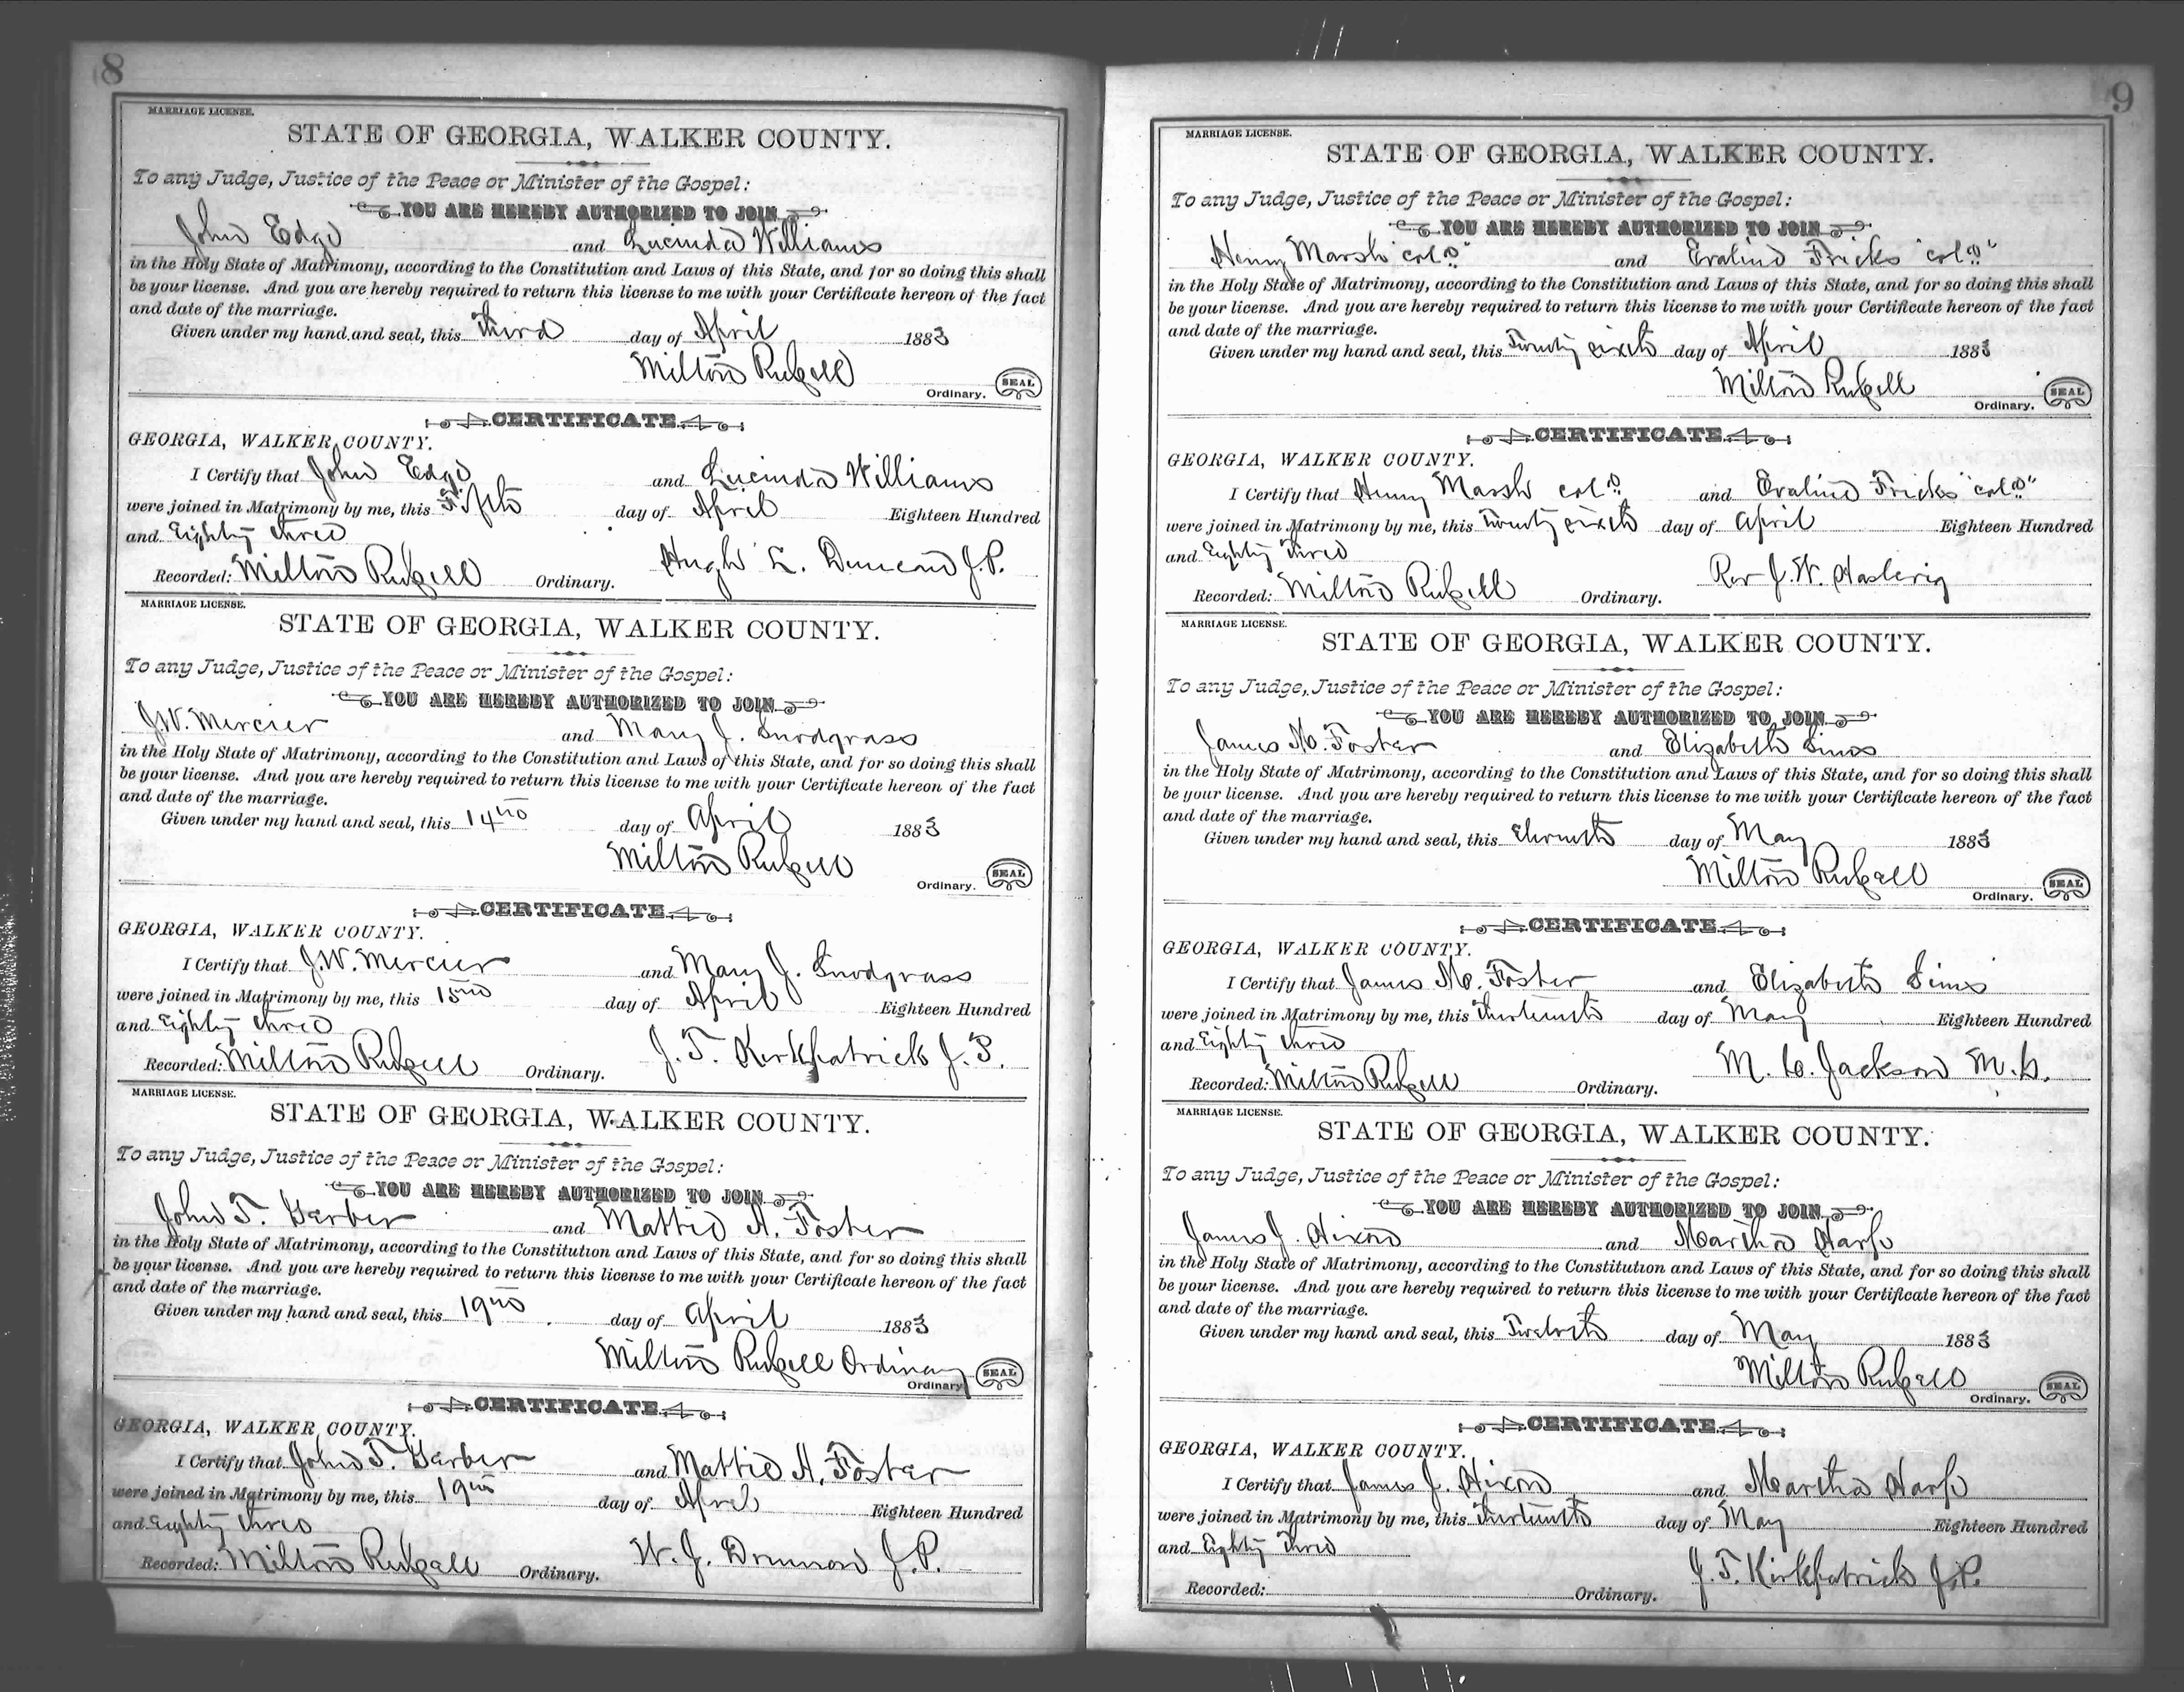 8
MARRIAGE LICENSE.
STATE OF GEORGIA, WALKER COUNTY.
To any Judge, Justice of the Peace or Minister of the Gospel:
YOU ARE HEREBY AUTHORIZED TO JOIN
John Edge and Lucinda Williams
in the Holy State of Matrimony, according to the Constitution and Laws of this State, and for so doing this shall
be your license. And you are hereby required to return this license to me with your Certificate hereon of the fact
and date of the marriage.
Given under my hand and seal, this Third day of April 1883
Milton Russell
Ordinary. SEAL
CERTIFICATE
GEORGIA, WALKER COUNTY.
I Certify that John Edge and Lucinda Williams
were joined in Matrimony by me, this Fifth day of April Eighteen Hundred
and Eighty three
Recorded: Milton Russell Ordinary. Hugh L. Duncan J.P.
MARRIAGE LICENSE.
STATE OF GEORGIA, WALKER COUNTY.
To any Judge, Justice of the Peace or Minister of the Gospel:
YOU ARE HEREBY AUTHORIZED TO JOIN
J.W. Mercier and Mary J. Snodgrass
in the Holy State of Matrimony, according to the Constitution and Laws of this State, and for so doing this shall
be your license. And you are hereby required to return this license to me with your Certificate hereon of the fact
and date of the marriage.
Given under my hand and seal, this 14th day of April 1883
Milton Russell
Ordinary. SEAL
CERTIFICATE
GEORGIA, WALKER COUNTY.
I Certify that J.W. Mercier and Mary J. Snodgrass
were joined in Matrimony by me, this 15th day of April Eighteen Hundred
and Eighty three
Recorded: Milton Russell Ordinary. J. T. Kirkpatrick J.P.
MARRIAGE LICENSE.
STATE OF GEORGIA, WALKER COUNTY.
To any Judge, Justice of the Peace or Minister of the Gospel:
YOU ARE HEREBY AUTHORIZED TO JOIN
John T. Garber and Mattie A. Foster
in the Holy State of Matrimony, according to the Constitution and Laws of this State, and for so doing this shall
be your license. And you are hereby required to return this license to me with your Certificate hereon of the fact
and date of the marriage.
Given under my hand and seal, this 19th day of April 1883
Milton Russell Ordinary
Ordinary SEAL
CERTIFICATE
GEORGIA, WALKER COUNTY.
I Certify that John T. Garber and Mattie A. Foster
were joined in Matrimony by me, this 19th day of April Eighteen Hundred
and Eighty three
Recorded: Milton Russell Ordinary. W. J. J.P.
9
MARRIAGE LICENSE.
STATE OF GEORGIA, WALKER COUNTY.
To any Judge, Justice of the Peace or Minister of the Gospel:
YOU ARE HEREBY AUTHORIZED TO JOIN
Henry Marsh "cold" and Evaline Fricks "cold"
in the Holy State of Matrimony, according to the Constitution and Laws of this State, and for so doing this shall
be your license. And you are hereby required to return this license to me with your Certificate hereon of the fact
and date of the marriage.
Given under my hand and seal, this Twenty sixth day of April 1883
Milton Russell
Ordinary. SEAL
CERTIFICATE
GEORGIA, WALKER COUNTY.
I Certify that Henry Marsh cold and Evaline Fricks "cold"
were joined in Matrimony by me, this Twenty sixth day of April Eighteen Hundred
and Eighty Three
Recorded: Milton Russell Ordinary. Rev J. W. Haslerig
MARRIAGE LICENSE.
STATE OF GEORGIA, WALKER COUNTY.
To any Judge, Justice of the Peace or Minister of the Gospel:
YOU ARE HEREBY AUTHORIZED TO JOIN
James M. Foster and Elizabeth Sims
in the Holy State of Matrimony, according to the Constitution and Laws of this State, and for so doing this shall
be your license. And you are hereby required to return this license to me with your Certificate hereon of the fact
and date of the marriage.
Given under my hand and seal, this Eleventh day of May 1883
Milton Russell
Ordinary. SEAL
CERTIFICATE
GEORGIA, WALKER COUNTY.
I Certify that James M. Foster and Elizabeth Sims
were joined in Matrimony by me, this Thirteenth day of May Eighteen Hundred
and Eighty three
Recorded: Milton Russell Ordinary. M. C. Jackson M.G.
MARRIAGE LICENSE.
STATE OF GEORGIA, WALKER COUNTY.
To any Judge, Justice of the Peace or Minister of the Gospel:
YOU ARE HEREBY AUTHORIZED TO JOIN
James J. Hixon and Martha Harp
in the Holy State of Matrimony, according to the Constitution and Laws of this State, and for so doing this shall
be your license. And you are hereby required to return this license to me with your Certificate hereon of the fact
and date of the marriage.
Given under my hand and seal, this Twelvth day of May 1883
Milton Russell
Ordinary. SEAL
CERTIFICATE
GEORGIA, WALKER COUNTY.
I Certify that James J. Hixon and Martha Harp
were joined in Matrimony by me, this Thirteenth day of May Eighteen Hundred
and Eighty Three
Recorded: Ordinary. J. T. Kirkpatrick J.P.